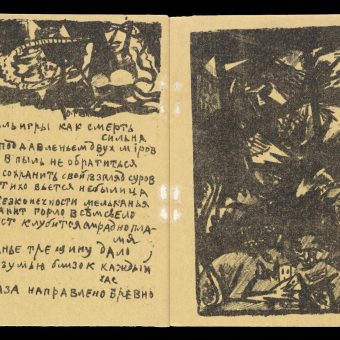 льигры как смерть
сильна
под давленьем двух мiров
в пыль не обратиться
сохранить свой взгляд суров
тихо вьется небылица
безконечности мельканья
анит горло всѣм свело
ст клубится смрадно пла-
мя
нье трещину дало
зумью близок каждый
час
аза направлено бревно